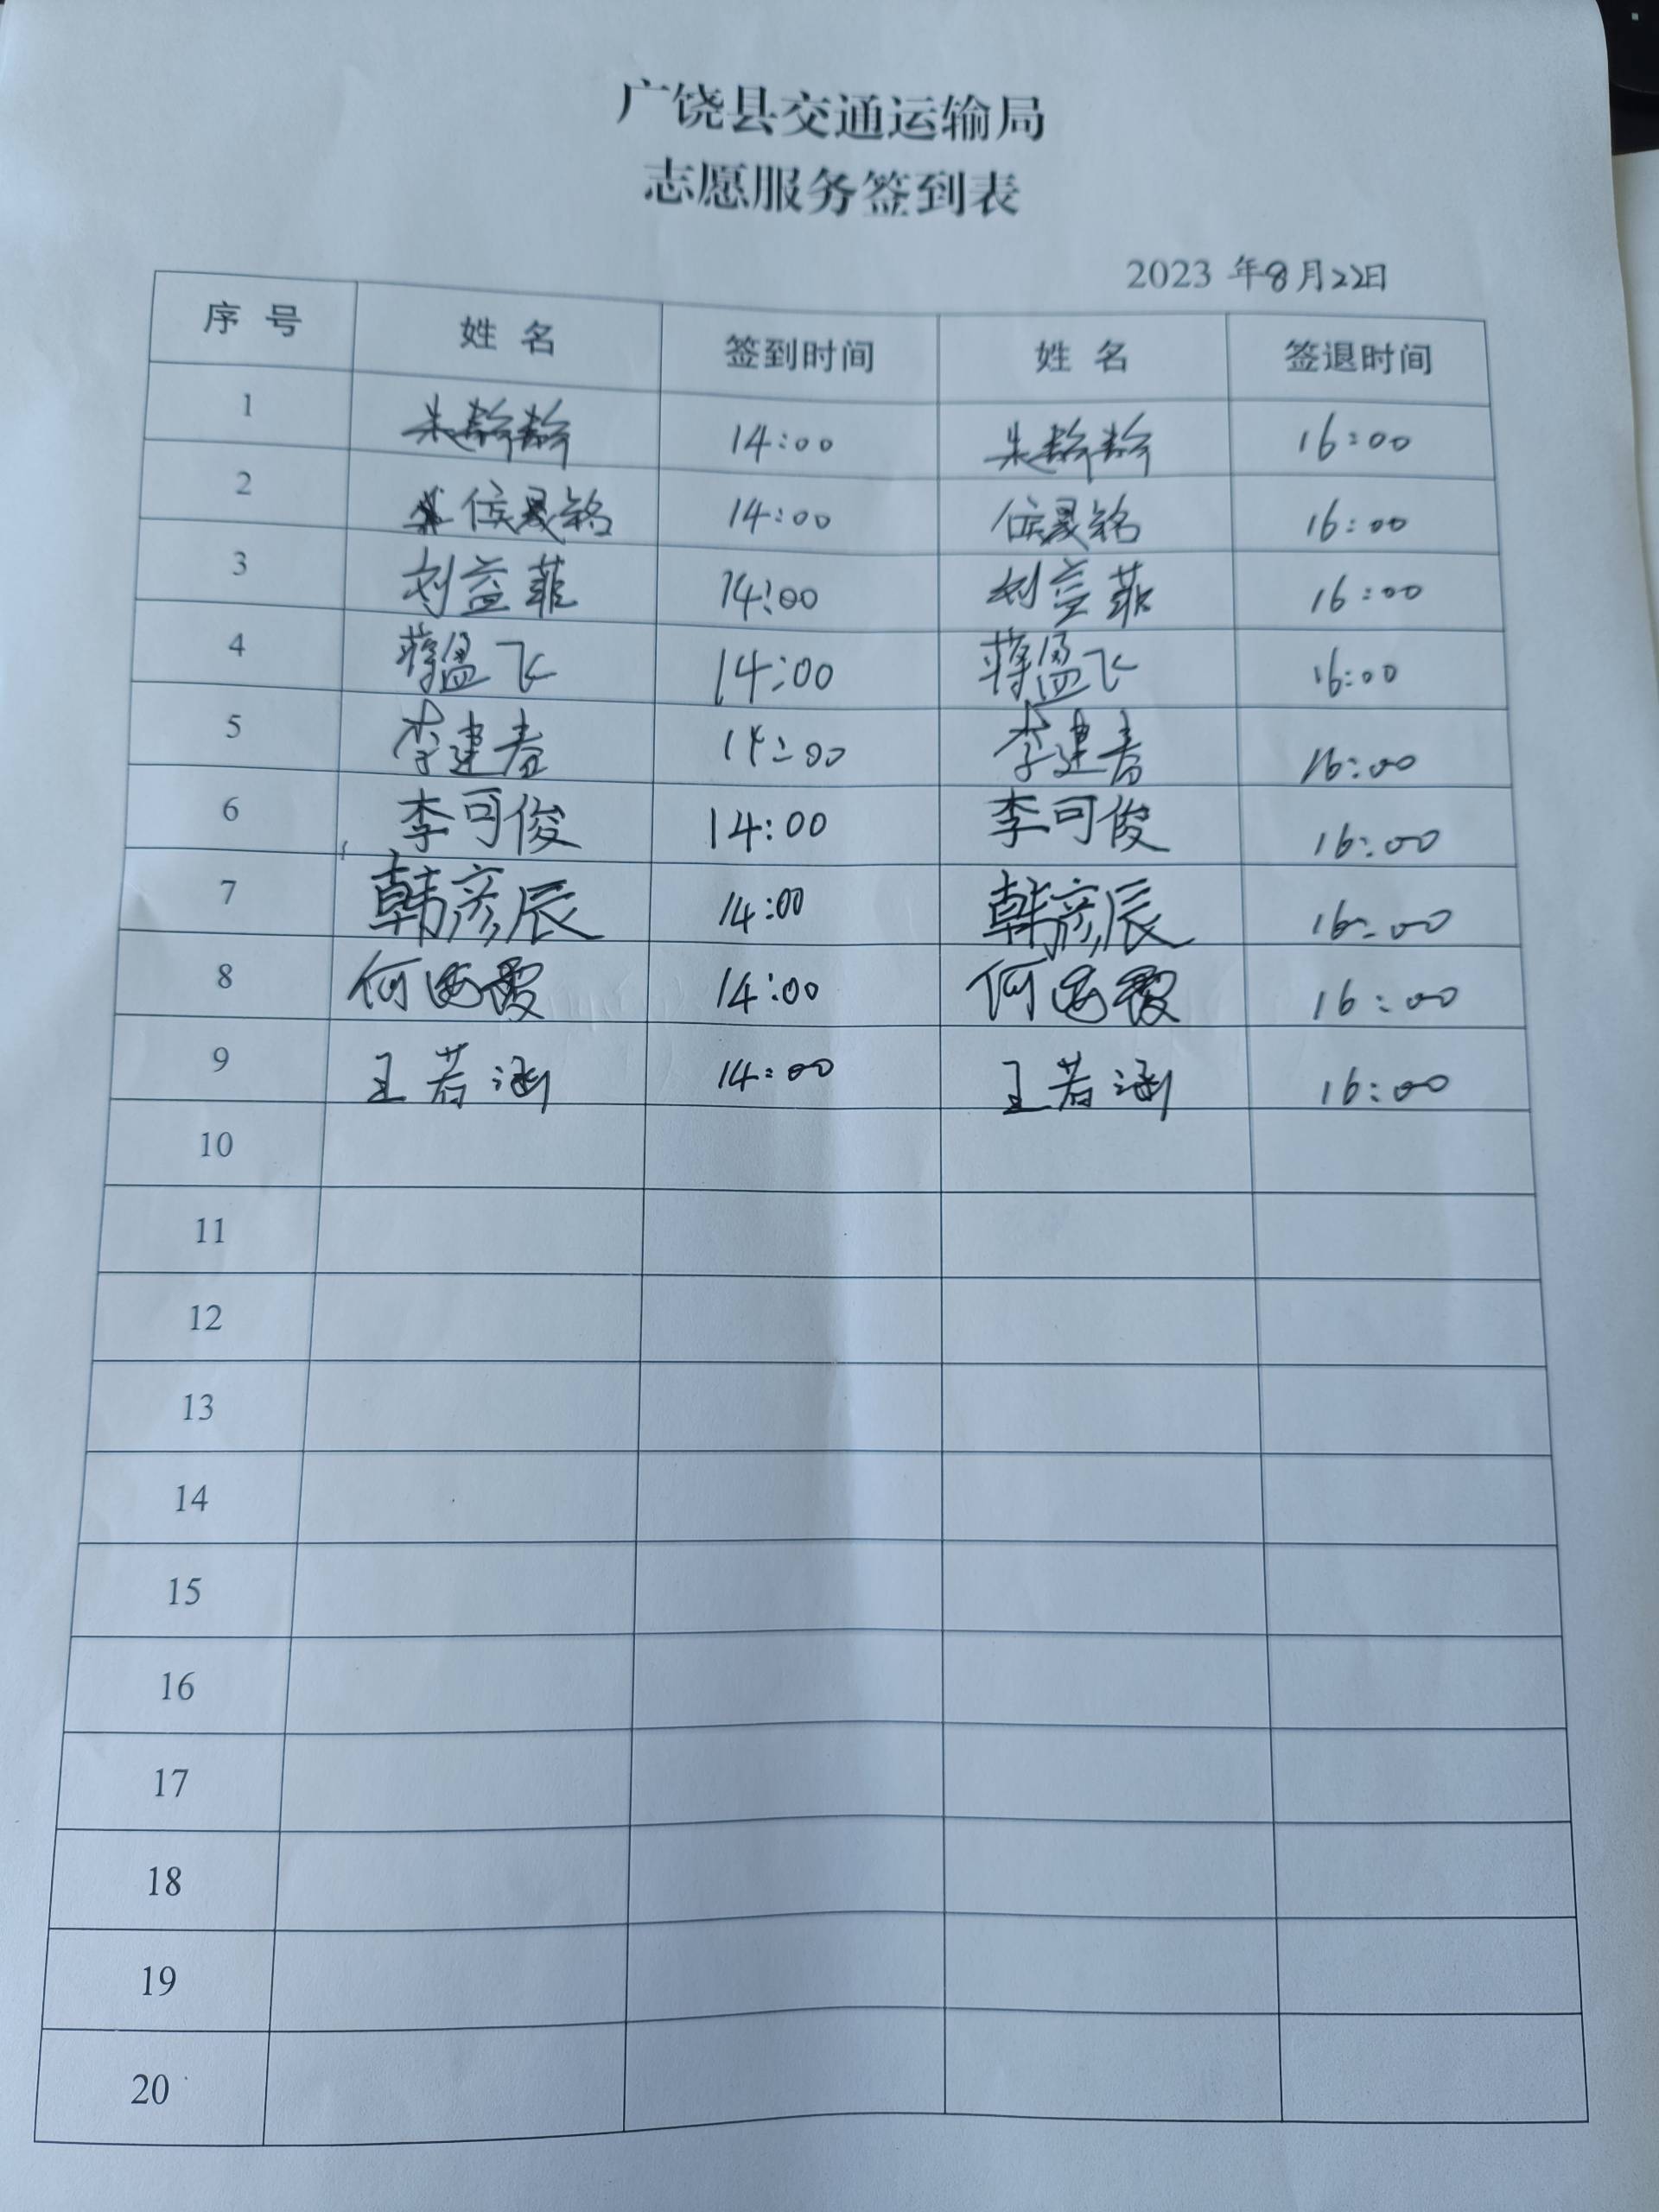 广饶县交通运输局
志愿服务签到表
2023 年8月22日
序 号 姓 名 签到时间 姓 名 签退时间
1 朱 14:00 朱 16:00
2 侯晟铭 14:00 侯晟铭 16:00
3 刘益菲 14:00 刘益菲 16:00
4 蒋盈飞 14:00 蒋盈飞 16:00
5 李建春 14:00 李建春 16:00
6 李可俊 14:00 李可俊 16:00
7 韩彦辰 14:00 韩彦辰 16:00
8 何海霞 14:00 何海霞 16:00
9 王若涵 14:00 王若涵 16:00
10
11
12
13
14
15
16
17
18
19
20